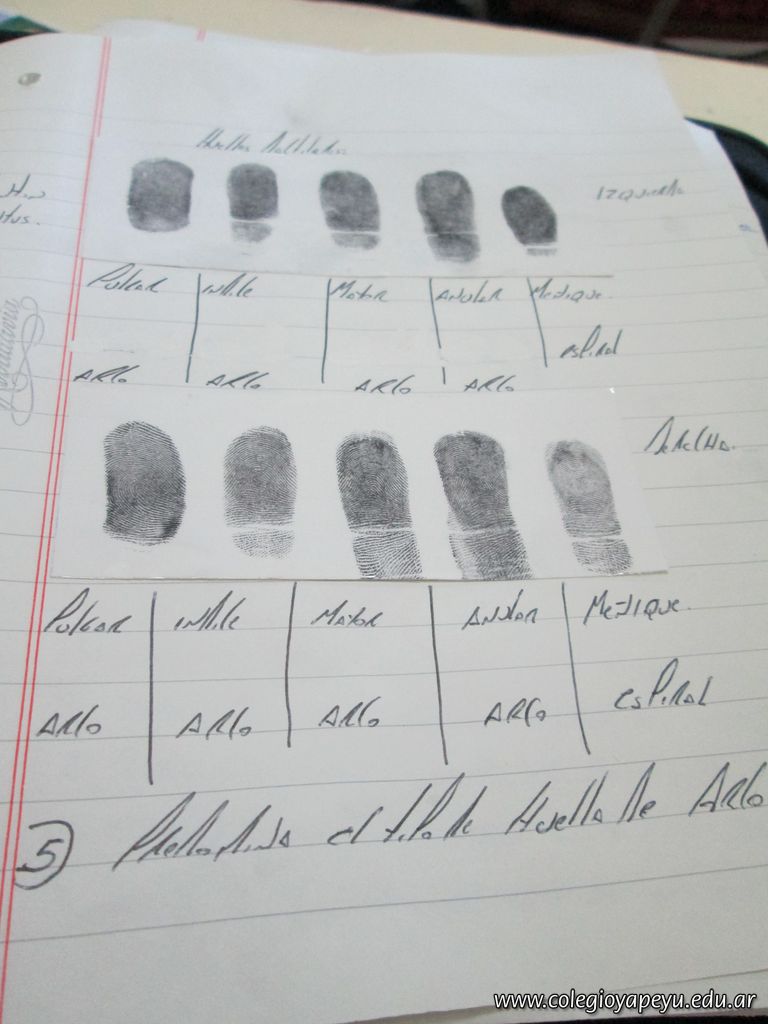 Huellas
Izquierda
Pulgar Indice Mayor Anular Meñique
espiral
Arco Arco Arco Arco
Derecha.
Pulgar Indice Mayor Anular Meñique.
Arco Arco Arco Arco espiral
5 Predomina el tipo de Huella de Arco
www.colegioyapeyu.edu.ar